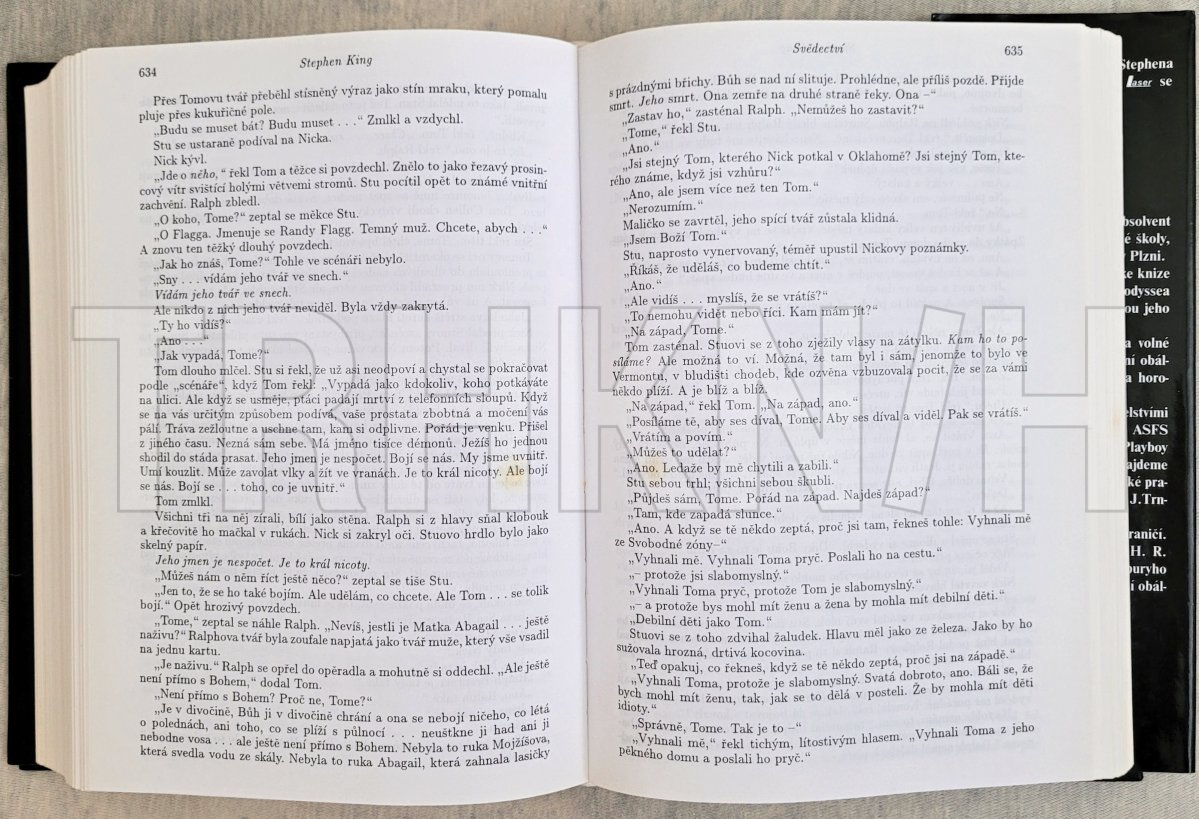 634
Stephen King
Přes Tomovu tvář přeběhl stísněný výraz jako stín mraku, který pomalu
pluje přes kukuřičné pole.
„Budu se muset bát? Budu muset . . .“ Zmlkl a vzdychl.
Stu se ustaraně podíval na Nicka.
Nick kývl.
„Jde o něho,“ řekl Tom a těžce si povzdechl. Znělo to jako řezavý prosin-
cový vítr svištící holými větvemi stromů. Stu pocítil opět to známé vnitřní
zachvění. Ralph zbledl.
„O koho, Tome?“ zeptal se měkce Stu.
„O Flagga. Jmenuje se Randy Flagg. Temný muž. Chcete, abych . . .“
A znovu ten těžký dlouhý povzdech.
„Jak ho znáš, Tome?“ Tohle ve scénáři nebylo.
„Sny . . . vídám jeho tvář ve snech.“
Vídám jeho tvář ve snech.
Ale nikdo z nich jeho tvář neviděl. Byla vždy zakrytá.
„Ty ho vidíš?“
„Ano . . .“
„Jak vypadá, Tome?“
Tom dlouho mlčel. Stu si řekl, že už asi neodpoví a chystal se pokračovat
podle „scénáře“, když Tom řekl: „Vypadá jako kdokoliv, koho potkáváte
na ulici. Ale když se usměje, ptáci padají mrtví z telefonních sloupů. Když
se na vás určitým způsobem podívá, vaše prostata zbobtná a močení vás
pálí. Tráva zežloutne a uschne tam, kam si odplivne. Pořád je venku. Přišel
z jiného času. Nezná sám sebe. Má jméno tisíce démonů. Ježíš ho jednou
shodil do stáda prasat. Jeho jmen je nespočet. Bojí se nás. My jsme uvnitř.
Umí kouzlit. Může zavolat vlky a žít ve vranách. Je to král nicoty. Ale bojí
se nás. Bojí se . . . toho, co je uvnitř.“
Tom zmlkl.
Všichni tři na něj zírali, bílí jako stěna. Ralph si z hlavy sňal klobouk
a křečovitě ho mačkal v rukách. Nick si zakryl oči. Stuovo hrdlo bylo jako
skelný papír.
Jeho jmen je nespočet. Je to král nicoty.
„Můžeš nám o něm říct ještě něco?“ zeptal se tiše Stu.
„Jen to, že se ho také bojím. Ale udělám, co chcete. Ale Tom . . . se tolik
bojí.“ Opět hrozivý povzdech.
„Tome,“ zeptal se náhle Ralph. „Nevíš, jestli je Matka Abagail . . . ještě
naživu?“ Ralphova tvář byla zoufale napjatá jako tvář muže, který vše vsadil
na jednu kartu.
„Je naživu.“ Ralph se opřel do opěradla a mohutně si oddechl. „Ale ještě
není přímo s Bohem,“ dodal Tom.
„Není přímo s Bohem? Proč ne, Tome?“
„Je v divočině, Bůh ji v divočině chrání a ona se nebojí ničeho, co létá
o polednách, ani toho, co se plíží s půlnocí . . . neuštkne ji had ani ji
nebodne vosa . . . ale ještě není přímo s Bohem. Nebyla to ruka Mojžíšova,
která svedla vodu ze skály. Nebyla to ruka Abagail, která zahnala lasičky
Svědectví
635
s prázdnými břichy. Bůh se nad ní slituje. Prohlédne, ale příliš pozdě. Přijde
smrt. Jeho smrt. Ona zemře na druhé straně řeky. Ona –“
„Zastav ho,“ zasténal Ralph. „Nemůžeš ho zastavit?“
„Tome,“ řekl Stu.
„Ano.“
„Jsi stejný Tom, kterého Nick potkal v Oklahomě? Jsi stejný Tom, kte-
rého známe, když jsi vzhůru?“
„Ano, ale jsem více než ten Tom.“
„Nerozumím.“
Maličko se zavrtěl, jeho spící tvář zůstala klidná.
„Jsem Boží Tom.“
Stu, naprosto vynervovaný, téměř upustil Nickovy poznámky.
„Říkáš, že uděláš, co budeme chtít.“
„Ano.“
„Ale vidíš . . . myslíš, že se vrátíš?“
„To nemohu vidět nebo říci. Kam mám jít?“
„Na západ, Tome.“
Tom zasténal. Stuovi se z toho zježily vlasy na zátylku. Kam ho to po-
síláme? Ale možná to ví. Možná, že tam byl i sám, jenomže to bylo ve
Vermontu, v bludišti chodeb, kde ozvěna vzbuzovala pocit, že se za vámi
někdo plíží. A je blíž a blíž.
„Na západ,“ řekl Tom. „Na západ, ano.“
„Posíláme tě, aby ses díval, Tome. Aby ses díval a viděl. Pak se vrátíš.“
„Vrátím a povím.“
„Můžeš to udělat?“
„Ano. Ledaže by mě chytili a zabili.“
Stu sebou trhl; všichni sebou škubli.
„Půjdeš sám, Tome. Pořád na západ. Najdeš západ?“
„Tam, kde zapadá slunce.“
„Ano. A když se tě někdo zeptá, proč jsi tam, řekneš tohle: Vyhnali mě
ze Svobodné zóny–“
„Vyhnali mě. Vyhnali Toma pryč. Poslali ho na cestu.“
„– protože jsi slabomyslný.“
„Vyhnali Toma pryč, protože Tom je slabomyslný.“
„– a protože bys mohl mít ženu a žena by mohla mít debilní děti.“
„Debilní děti jako Tom.“
Stuovi se z toho zdvihal žaludek. Hlavu měl jako ze železa. Jako by ho
sužovala hrozná, drtivá kocovina.
„Teď opakuj, co řekneš, když se tě někdo zeptá, proč jsi na západě.“
„Vyhnali Toma, protože je slabomyslný. Svatá dobroto, ano. Báli se, že
bych mohl mít ženu, tak, jak se to dělá v posteli. Že by mohla mít děti
idioty.“
„Správně, Tome. Tak je to –“
„Vyhnali mě,“ řekl tichým, lítostivým hlasem. „Vyhnali Toma z jeho
pěkného domu a poslali ho pryč.“
Stephena
laser se
bsolvent
é školy,
Plzni.
ke knize
odyssea
ou jeho
a volné
ní obál-
a horo-
elstvími
ASFS
Playboy
ajdeme
ké pra-
J.Trn-
raničí.
H. R.
buryho
í obál-
TRHKNIH